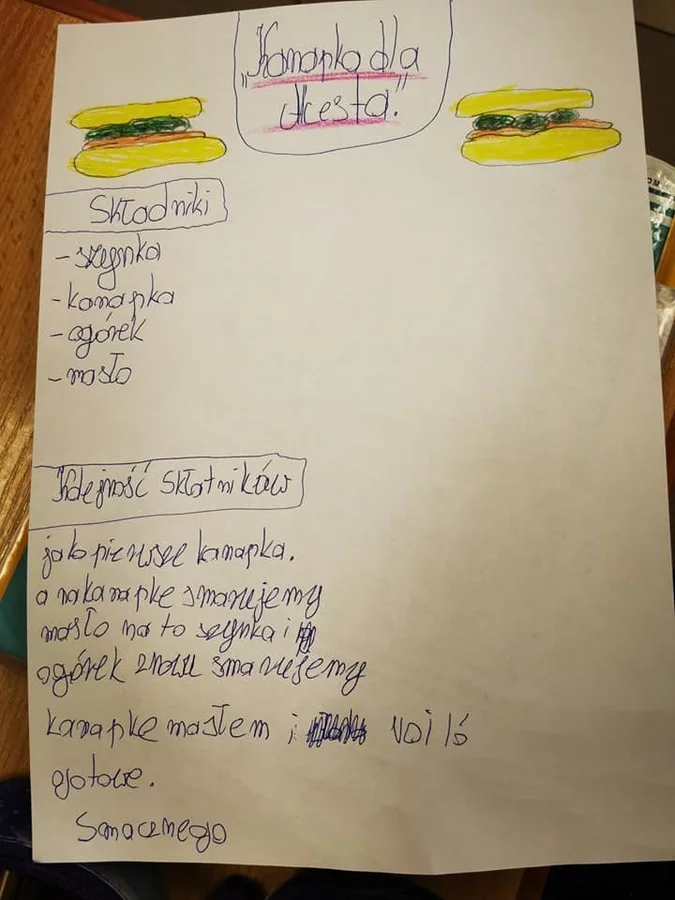 "Kanapka dla
Alcesta."
Składniki
- szynka
- kanapka
- ogórek
- masło
Kolejność składników
jako pierwsze kanapka.
a na kanapke smarujemy
masło na to szynka i
ogórek znowu smarujemy
kanapke masłem i voi ló
gotowe.
Smacznego